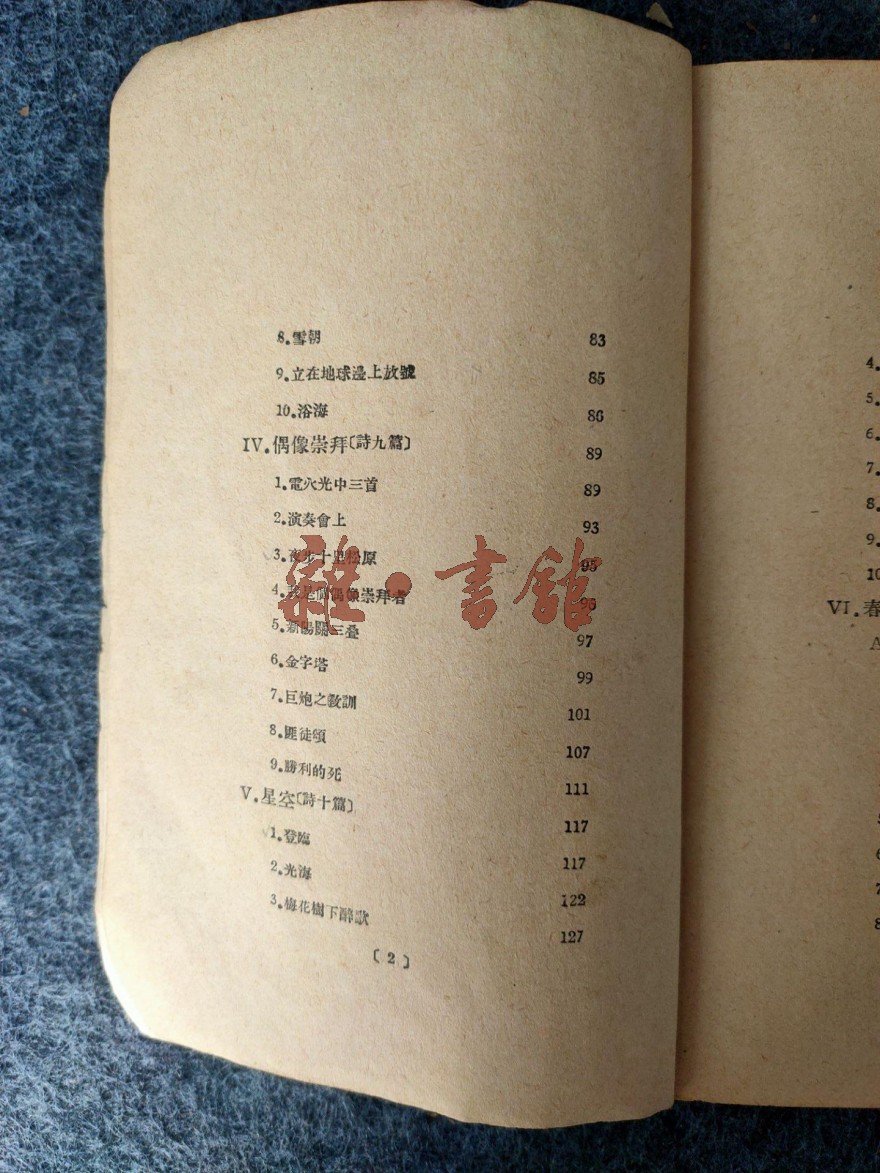 8.雪朝 83
9.立在地球邊上放號 85
10.浴海 86
IV.偶像崇拜〔詩九篇〕 89
1.電火光中三首 89
2.演奏會上 93
3.夜步十里松原 95
4.我是個偶像崇拜者 96
5.新陽關三疊 97
6.金字塔 99
7.巨炮之教訓 101
8.匪徒頌 107
9.勝利的死 111
V.星空〔詩十篇〕 117
1.登臨 117
2.光海 122
3.梅花樹下醉歌 127
〔2〕
雜·書館
4.
5.
6.
7.
8.
9.
10
VI.春
A
8